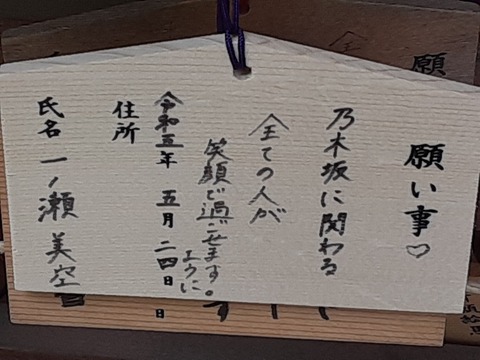 願い事♡
乃木坂に関わる
全ての人が
笑顔で過ごせます。
ように
令和五年 五月二四日
住所
氏名 一ノ瀬 美空
願